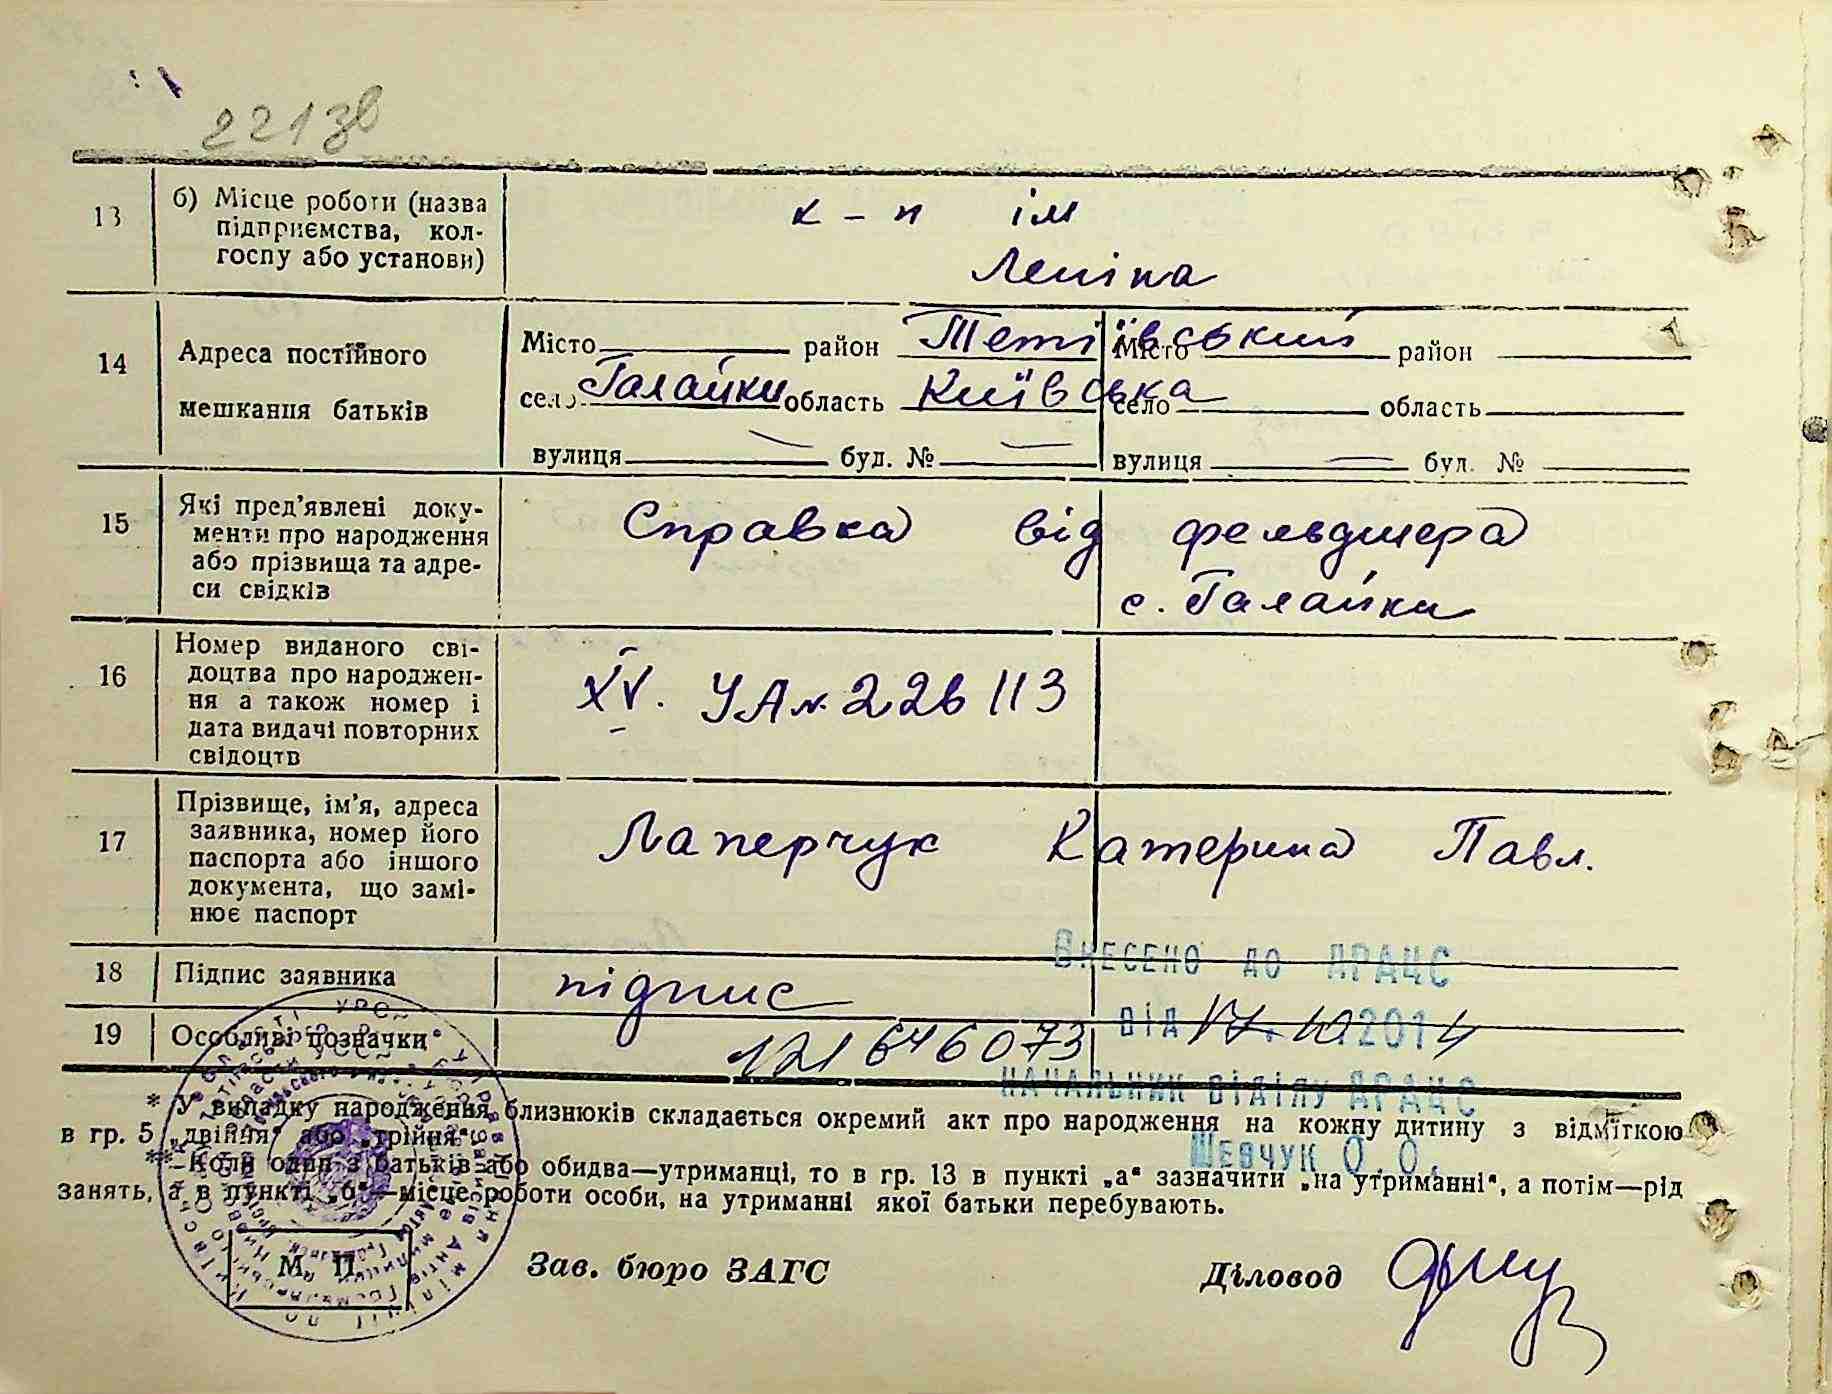 2213в
13
б) Місце роботи (назва
підприємства, кол-
госпу або установи)
к-п ім
Леніна
14
Адреса постійного
мешкання батьків
Місто район Тетіївський Місто район
село Галайки область Київська село область
вулиця — буд. № — вулиця — буд. №
15
Які пред'явлені доку-
менти про народження
або прізвища та адре-
си свідків
Справка від фельдшера
с. Галайки
16
Номер виданого сві-
доцтва про народжен-
ня а також номер і
дата видачі повторних
свідоцтв
XV. УА № 226113
17
Прізвище, ім'я, адреса
заявника, номер його
паспорта або іншого
документа, що замі-
нює паспорт
Лаперчук Катерина Павл.
18
Підпис заявника
підпис
Внесено до ДРАЦС
19
Особливі позначки*
121646073
від 17.10 2014
Начальник відділу ДРАЦС
Шевчук О. О.
* У випадку народження близнюків складається окремий акт про народження на кожну дитину з відміткою
в гр. 5 „двійня" або „трійня".
** Коли один з батьків або обидва—утриманці, то в гр. 13 в пункті „а" зазначити „на утриманні", а потім—рід
занять, а в пункті „б"—місце роботи особи, на утриманні якої батьки перебувають.
М. П.
Зав. бюро ЗАГС
Діловод